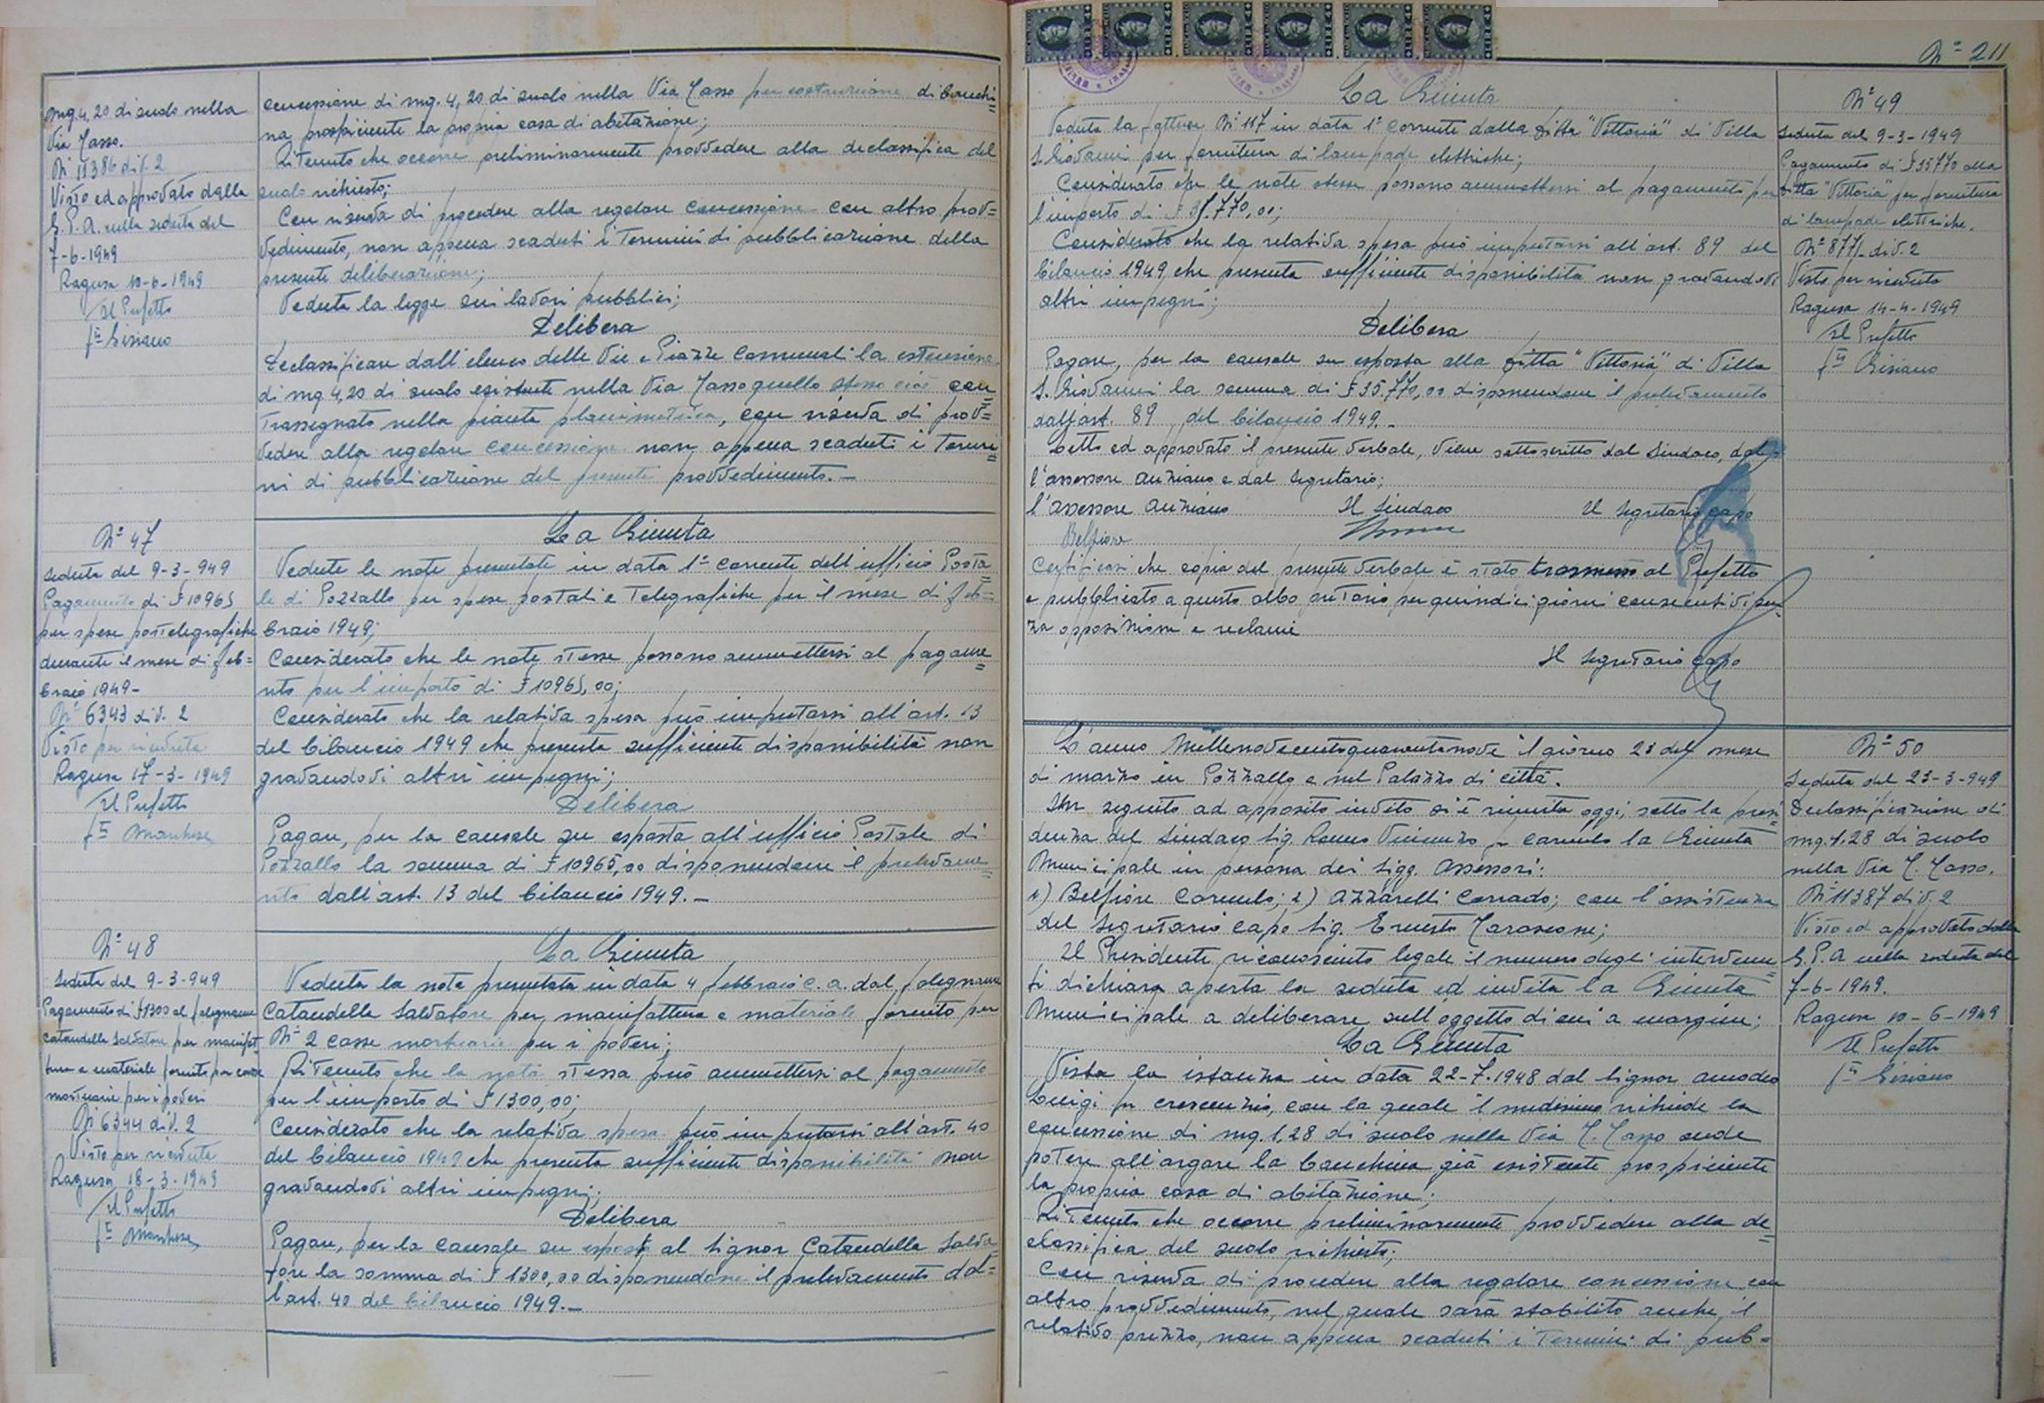 mq. 4,20 di suolo nella
Via Tasso.
N° 11386 div. 2
Visto ed approvato dalla
G. P. A. nella seduta del
7-6-1949
Ragusa 10-6-1949
Il Prefetto
concessione di mq. 4,20 di suolo nella Via Tasso per costruzione di banchi=
na prospiciente la propria casa di abitazione;
Ritenuto che occorre preliminarmente provvedere alla declassifica del
suolo richiesto;
Con riserva di procedere alla regolare concessione con altro prov=
vedimento, non appena scaduti i termini di pubblicazione della
presente deliberazione;
Veduta la legge sui lavori pubblici;
Delibera
Declassificare dall'elenco delle Vie e Piazze Comunali la estensione
di mq. 4,20 di suolo esistente nella Via Tasso quello stesso cioè con=
trassegnato nella pianta planimetrica, con riserva di prov=
vedere alla regolare concessione non appena scaduti i termi=
ni di pubblicazione del presente provvedimento. -
N° 47
Seduta del 9-3-949
Pagamento di £ 10965
per spese postelegrafiche
durante il mese di feb=
braio 1949-
N° 6343 div. 2
Visto per ricevuta
Ragusa 17-3-1949
Il Prefetto
La Giunta
Vedute le note presentate in data 1° corrente dall'ufficio Posta=
le di Pozzallo per spese postali e telegrafiche per il mese di feb=
braio 1949;
Considerato che le note stesse possono ammettersi al pagame=
nto per l'importo di £ 10965,00;
Considerato che la relativa spesa può imputarsi all'art. 13
del bilancio 1949 che presenta sufficiente disponibilità non
gravandovi altri impegni;
Delibera
Pagare, per la causale su esposta all'ufficio Postale di
Pozzallo la somma di £ 10965,00 disponendone il prelevame=
nto dall'art. 13 del bilancio 1949. -
N° 48
Seduta del 9-3-949
Pagamento di £ 1300 al falegname
Cataudella Salvatore per manifat=
tura e materiale fornito per casse
mortuarie per i poveri
N° 6344 div. 2
Visto per ricevuta
Ragusa 18-3-1949
Il Prefetto
La Giunta
Veduta la nota presentata in data 4 febbraio c. a. dal falegname
Cataudella Salvatore per manifattura e materiale fornito per
N° 2 casse mortuarie per i poveri;
Ritenuto che la nota stessa può ammettersi al pagamento
per l'importo di £ 1300,00;
Considerato che la relativa spesa può imputarsi all'art. 40
del bilancio 1949 che presenta sufficiente disponibilità non
gravandovi altri impegni;
Delibera
Pagare, per la causale su esposta al Signor Cataudella Salva=
tore la somma di £ 1300,00 disponendone il prelevamento dal=
l'art. 40 del bilancio 1949. -
N° 211
La Giunta
Veduta la fattura N° 117 in data 1° corrente dalla Ditta "Vittoria" di Villa
S. Giovanni per fornitura di lampade elettriche;
Considerato che le note stesse possono ammettersi al pagamento per
l'importo di £ 35.770,00;
Considerato che la relativa spesa può imputarsi all'art. 89 del
bilancio 1949 che presenta sufficiente disponibilità non gravandovi
altri impegni;
Delibera
Pagare, per la causale su esposta alla Ditta "Vittoria" di Villa
S. Giovanni la somma di £ 35.770,00 disponendone il prelevamento
dall'art. 89 del bilancio 1949. -
Letto ed approvato il presente verbale, viene sottoscritto dal Sindaco, dal=
l'assessore anziano e dal Segretario;
l'assessore anziano Il Sindaco Il Segretario capo
Belfiore
Certificasi che copia del presente verbale è stato trasmesso al Prefetto
e pubblicato a questo albo pretorio per quindici giorni consecutivi sen=
za opposizione e reclami
Il Segretario capo
N° 49
Seduta del 9-3-1949
Pagamento di £ 35770 alla
Ditta Vittoria per fornitura
di lampade elettriche.
N° 8771 div. 2
Visto per ricevuta
Ragusa 14-4-1949
Il Prefetto
L'anno Millenovecentoquarantanove il giorno 23 del mese
di marzo in Pozzallo e nel Palazzo di città.
In seguito ad apposito invito si è riunita oggi, sotto la presi=
denza del Sindaco Sig. Romeo Vincenzo fu Carmelo la Giunta
Municipale in persona dei Sigg. Assessori:
1) Belfiore Carmelo; 2) Azzarelli Corrado; con l'assistenza
del Segretario capo Sig. Ernesto Tarascone;
Il Presidente riconosciuto legale il numero degli intervenu=
ti dichiara aperta la seduta ed invita la Giunta
Municipale a deliberare sull'oggetto di cui a margine;
La Giunta
Vista la istanza in data 22-7-1948 dal Signor Amodeo
Luigi fu Crescenzio, con la quale il medesimo richiede la
concessione di mq. 1,28 di suolo nella Via T. Tasso onde
potere allargare la banchina già esistente prospiciente
la propria casa di abitazione;
Ritenuto che occorre preliminarmente provvedere alla de=
classifica del suolo richiesto;
Con riserva di procedere alla regolare concessione con
altro provvedimento, nel quale sarà stabilito anche il
relativo prezzo, non appena scaduti i termini di pub=
N° 50
Seduta del 23-3-949
Declassificazione di
mq. 1.28 di suolo
nella Via T. Tasso.
N° 11387 div. 2
Visto ed approvato dalla
G. P. A. nella seduta del
7-6-1949.
Ragusa 10-6-1949
Il Prefetto